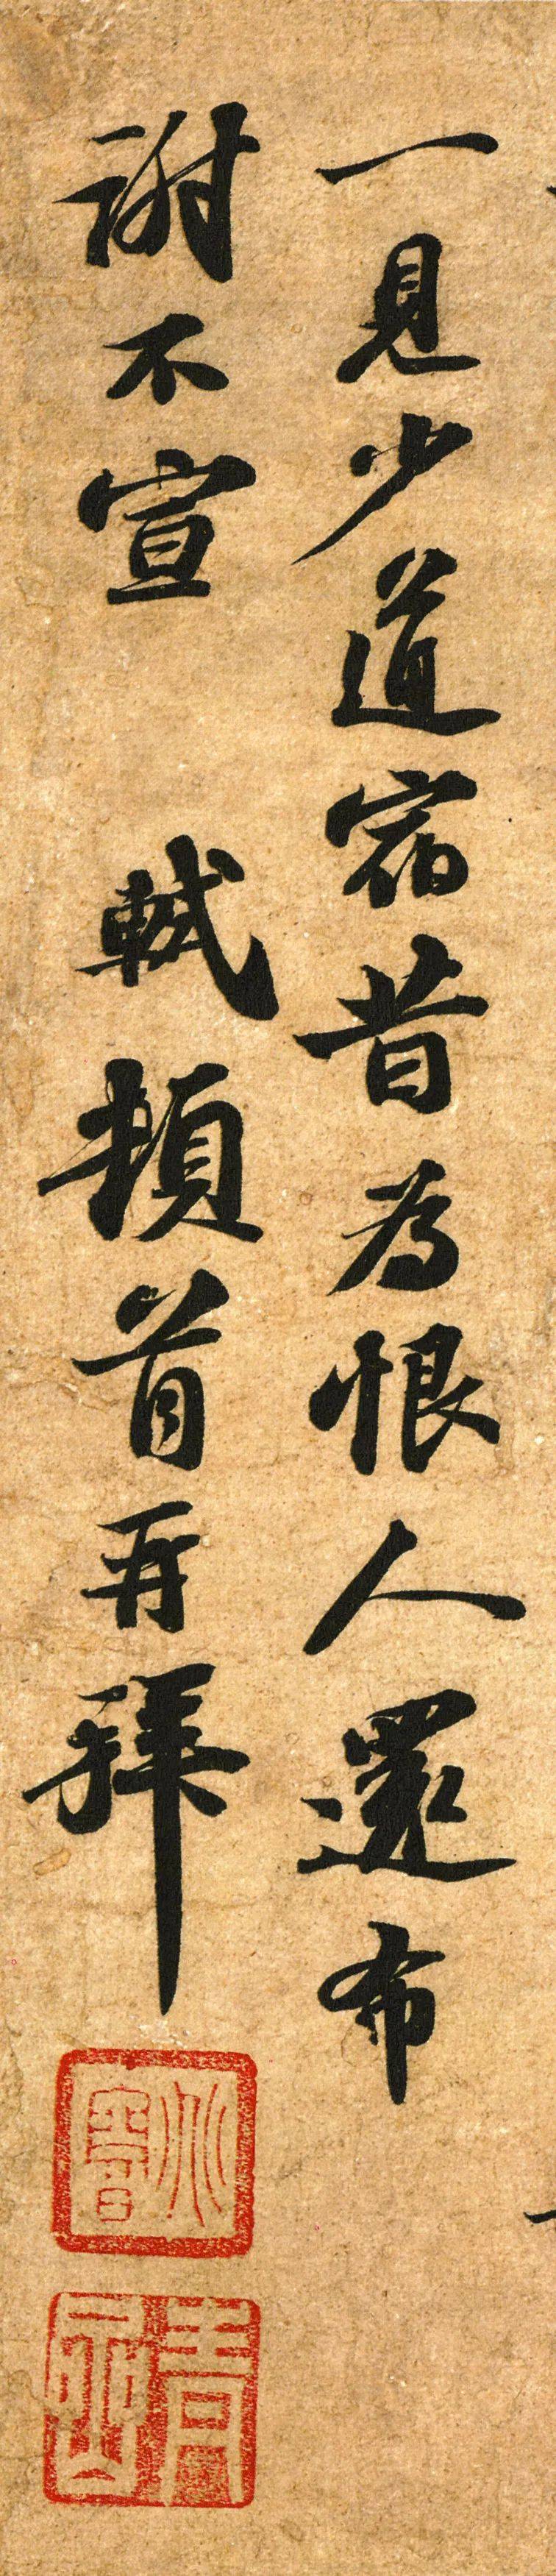 一見少道宿昔為恨人還布
謝不宣 軾頓首再拜